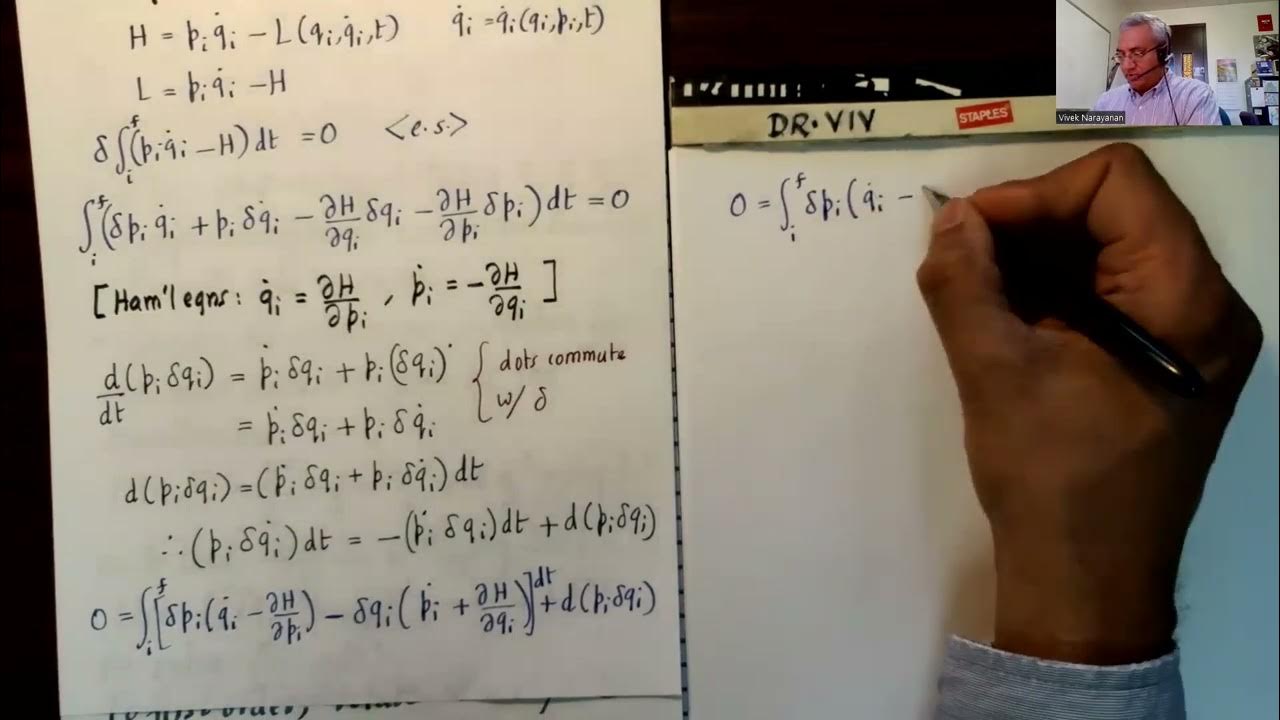 H = pᵢq̇ᵢ − L(qᵢ,q̇ᵢ,t)   q̇ᵢ = q̇ᵢ(qᵢ,pᵢ,t)
L = pᵢq̇ᵢ − H
δ∫ᵢᶠ(pᵢq̇ᵢ − H)dt = 0   <e.s>
∫ᵢᶠ(δpᵢ q̇ᵢ + pᵢ δq̇ᵢ − ∂H/∂qᵢ δqᵢ − ∂H/∂pᵢ δpᵢ)dt = 0
[Ham'l eqns: q̇ᵢ = ∂H/∂pᵢ , ṗᵢ = −∂H/∂qᵢ ]
d/dt(pᵢδqᵢ) = ṗᵢ δqᵢ + pᵢ(δqᵢ)˙ { dots commute
= ṗᵢ δqᵢ + pᵢ δq̇ᵢ   w/ δ
d(pᵢδqᵢ) = (ṗᵢ δqᵢ + pᵢ δq̇ᵢ)dt
∴ (pᵢ δq̇ᵢ)dt = −(ṗᵢ δqᵢ)dt + d(pᵢδqᵢ)
0 = ∫ᵢᶠ[δpᵢ(q̇ᵢ − ∂H/∂pᵢ) − δqᵢ(ṗᵢ + ∂H/∂qᵢ)]dt + d(pᵢδqᵢ)
DR·VIV
STAPLES
0 = ∫ᵢᶠ δpᵢ(q̇ᵢ −
Vivek Narayanan